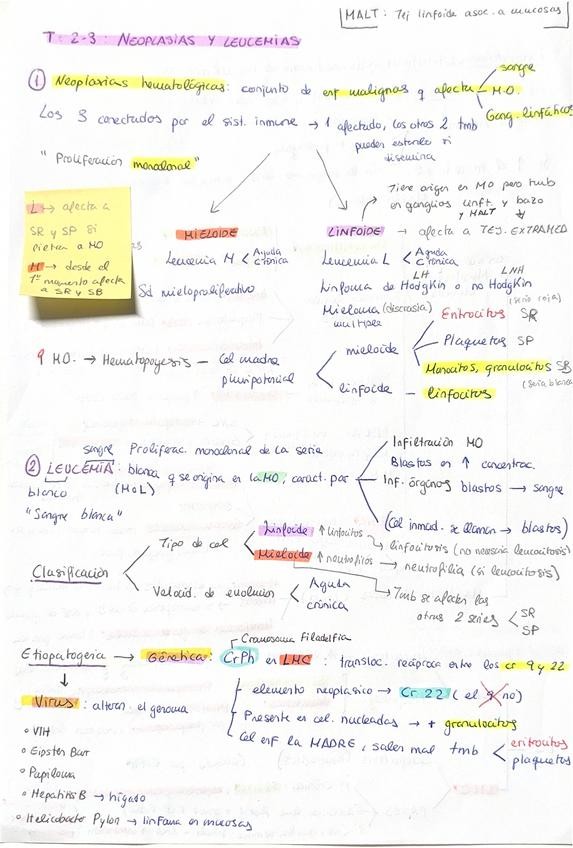 MALT: Tej linfoide asoc. a mucosas
T: 2-3: NEOPLASIAS Y LEUCEMIAS
① Neoplasias hematológicas: conjunto de enf malignas q afecta
sangre
M.O.
Gang. linfáticos
Los 3 conectados por el sist. inmune → 1 afectado, los otros 2 tmb
pueden estarlo si
disemina
"Proliferación monoclonal"
L → afecta a
SR y SP si
pletra a MO
M → desde el
1º momento afecta
a SR y SB
MIELOIDE
Leucemia M < Aguda
crónica
Sd mieloproliferativo
Tiene origen en MO pero tmb
en ganglios linft. y bazo
y MALT
LINFOIDE → afecta a TEJ. EXTRAMED
Leucemia L < Aguda
crónica
LH LNH
Linfoma de Hodgkin o no Hodgkin
Mieloma (discrasia)
multiple
MO. → Hematopoyesis — Cel madre
pluripotencial
mieloide
(serie roja)
Eritrocitos SR
Plaquetas SP
Monocitos, granulocitos SB
(Serie blanca)
linfoide — linfocitos
sangre Proliferac. monoclonal de la serie
② LEUCEMIA: blanca q se origina en la MO, caract. por
blanco (M o L)
"Sangre blanca"
Infiltración MO
Blastos en ↑ concentrac.
Inf. órganos blastos → sangre
(Cel inmad. se llaman → blastos)
Clasificación
Tipo de cel
Linfoide ↑ linfocitos → linfocitosis (no necesaria leucocitosis)
Mieloide ↑ neutrofilos → neutrofilia (si leucocitosis)
Tmb se afectan las
otras 2 series < SR
SP
Velocid. de evolución < Aguda
crónica
Cromosoma Filadelfia
Etiopatogenia → Génetica: CrPh en LMC: transloc. recíproca entre los cr 9 y 22
elemento neoplasico → Cr 22 (el 9 no)
Presente en cel. nucleadas → + granulocitos
Cel enf la MADRE, salen mal tmb < eritrocitos
plaquetas
Virus: alteran el genoma
○ VIH
○ Eipster Barr
○ Papiloma
○ Hepatitis B → hígado
○ Helicobacter Pylori → linfoma en mucosas